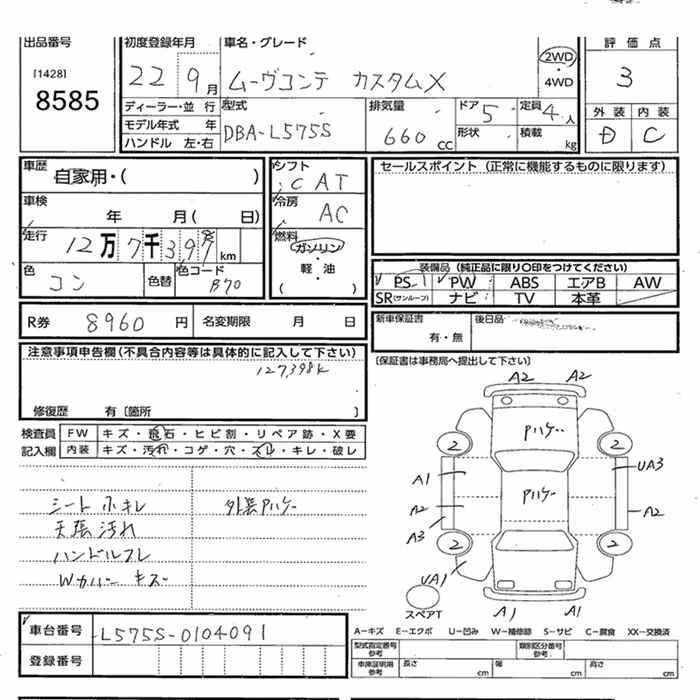 出品番号
[1428]
8585
初度登録年月
22 9月
車名・グレード
ムーヴコンテ カスタムX
2WD
・
4WD
評価点
3
外装 内装
D C
ディーラー・並 行
モデル年式 年
ハンドル 左・右
型式
DBA-L575S
排気量
660 CC
ドア 5
形状
定員 4人
積載 kg
車歴
自家用・( )
車検
年 月( 日)
走行
12万7千397km
色
コン
色替
色コード
B70
シフト
CAT
冷房
AC
燃料
ガソリン
・
軽・油
( )
セールスポイント (正常に機能するものに限ります)
装備品 (純正品に限り〇印をつけてください)
PS PW ABS エアB AW
SR(サンルーフ) ナビ TV 本革
R券 8960 円 名変期限 月 日
新車保証書
有・無
後日品
(保証書は事務局へ提出して下さい)
注意事項申告欄(不具合内容等は具体的に記入して下さい)
127,398K
修復歴 有〔箇所 〕
検査員
記入欄
FW キズ・飛石・ヒビ割・リペア跡・X要
内装 キズ・汚れ・コゲ・穴・スレ・キレ・破レ
シート ホキレ
天張汚れ
ハンドルスレ
Wカバー キズ
外装Pハゲー
A2 A2
Pハゲ..
2 2
A1 UA3
Pハゲー
A2 A2
A3
2 2
UA1
スペアT
A1 A1
A-キズ E-エクボ U-凹み W-補修跡 S-サビ C-腐食 XX-交換済
車台番号 L575S-0104091
登録番号
型式指定番号
参考
類別区分番号
参考
車庫証明用
参考
長さ cm 幅 cm 高さ cm